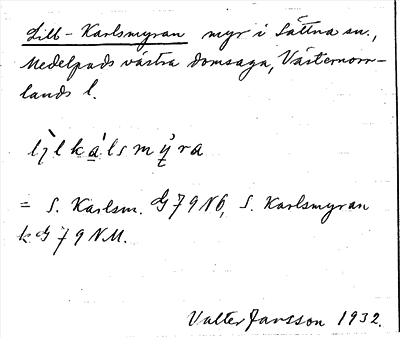 Lill-Karlsmyran myr i Sättna sn.,
Medelpads västra domsaga, Västernorr-
lands l.
= S. Karlsm. G 79 N6, S. Karlsmyran
k G 79 NM.
Valter Jansson 1932.